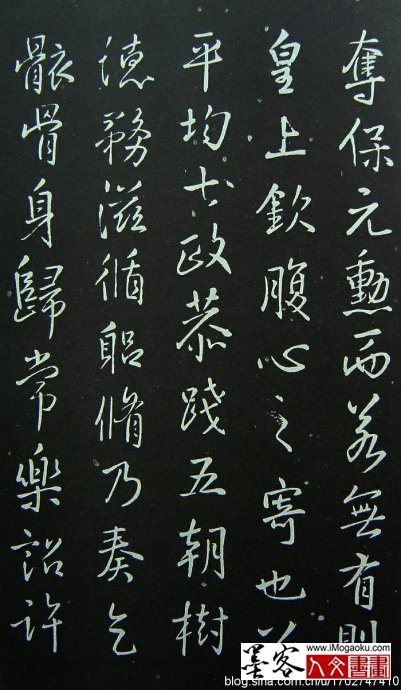 奪保元勳而若無有則
皇上欽腹心之寄也
平均土政恭踐五朝樹
德務滋循躬脩乃奏乞
骸骨身歸常樂詔許
墨客
www.iMogaoku.com
人文書畫
blog.sina.com.cn/u/1702747410